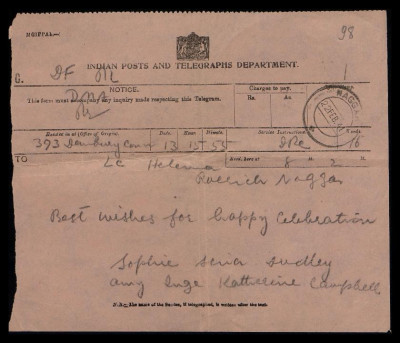 98
INDIAN POSTS AND TELEGRAPHS DEPARTMENT.
NOTICE.
This form must accompany any inquiry made respecting this Telegram.
Charges to pay.
Rs. As.
NAGGAR
Handed in at (Office of Origin). Date. Hour. Minute. Service Instructions. Words.
393 13 15 55 16
TO
Recd. here at 8 H. 2 M.
Helena
Roerich Naggar
Best wishes for happy Celebration
Sophie Dudley
Amy Inge Katherine Campbell
N.B.—The name of the Sender, if telegraphed, is written after the text.